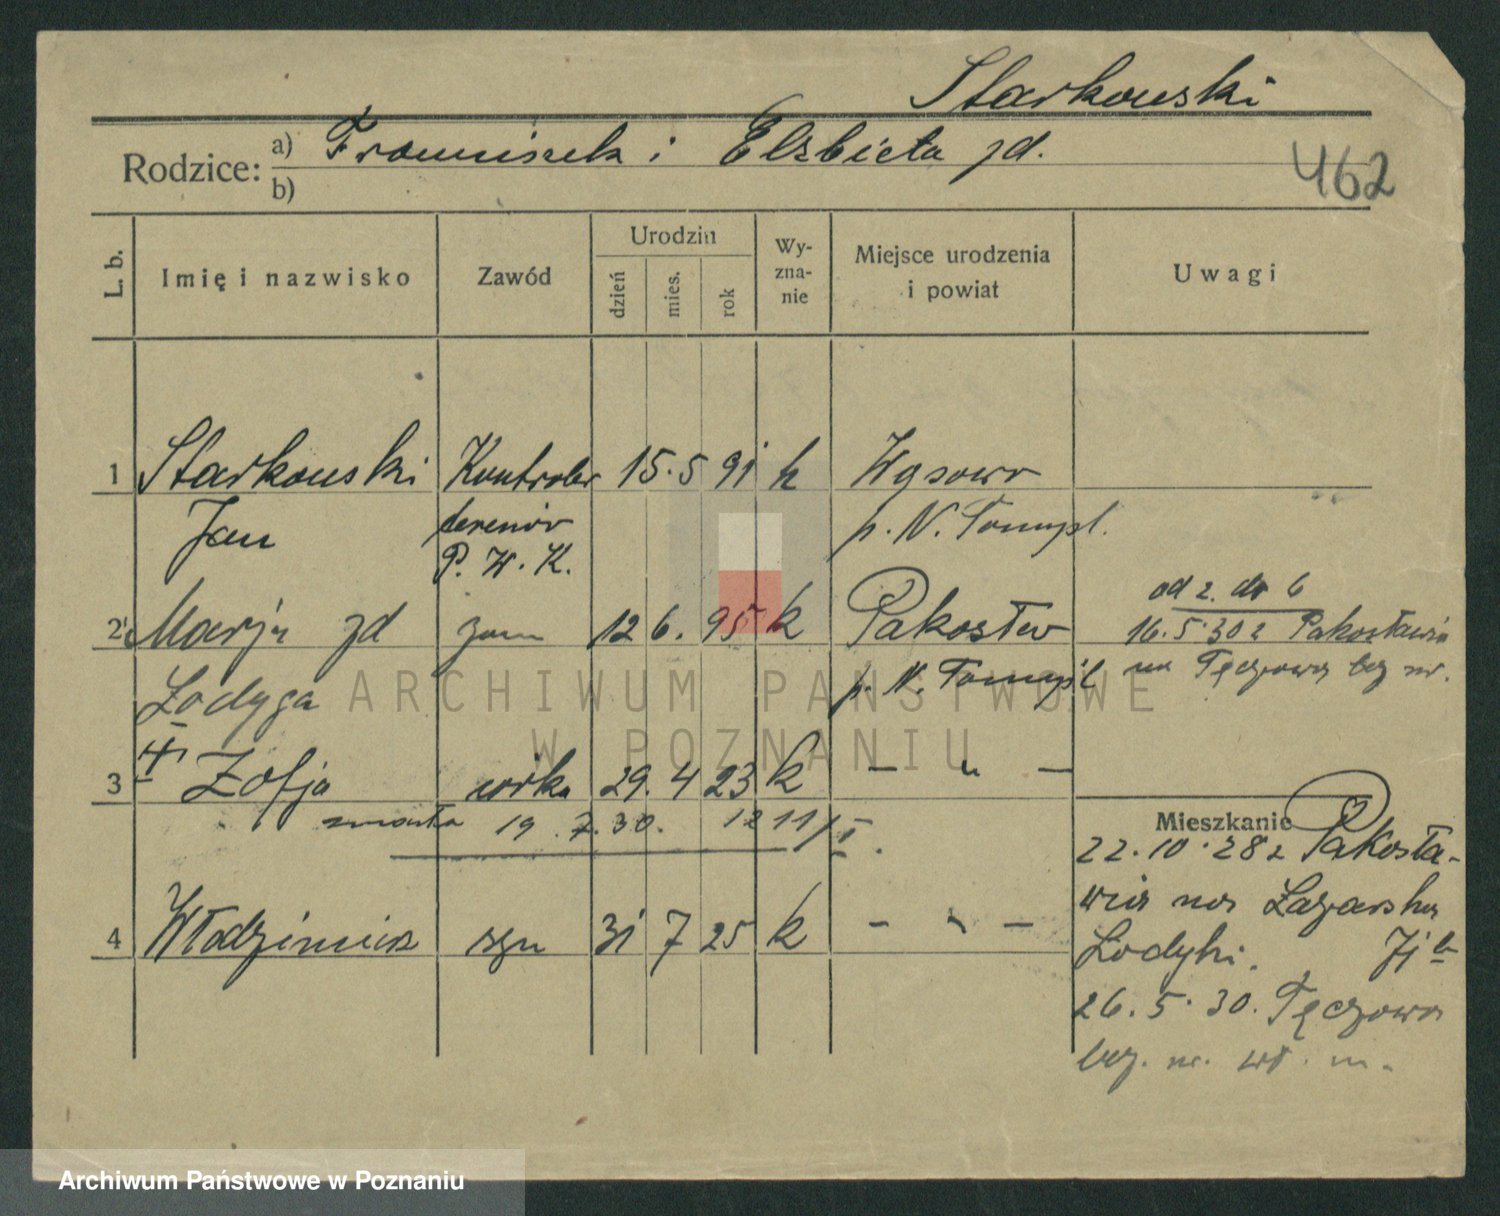 Starkowski
Rodzice: a) Franciszek i Elżbieta zd.
b)
462
L. b.
Imię i nazwisko
Zawód
Urodzin
dzień
mies.
rok
Wy-
zna-
nie
Miejsce urodzenia
i powiat
Uwagi
1 Starkowski Kontroler 15. 5 91 k Wąsowo
Jan terenów p. N. Tomyśl.
P. W. K.
od 2. do 6
2 Marja zd żona 12 6. 95 k Pakosław 16.5.30 z Pakosławia
Łodyga p. N. Tomyśl na Tęczową bez nr.
3 Zofja córka 29. 4 23 k – " –
zmarła 19. 7. 30. 1211/I.
Mieszkanie
22.10.28 z Pakosła-
wia na Łazarską
4 Włodzimierz syn 31 7 25 k – " –
Łodyki.
26. 5. 30. Tęczowa
bez. nr. wł. m.
ARCHIWUM PAŃSTWOWE
W POZNANIU
Archiwum Państwowe w Poznaniu